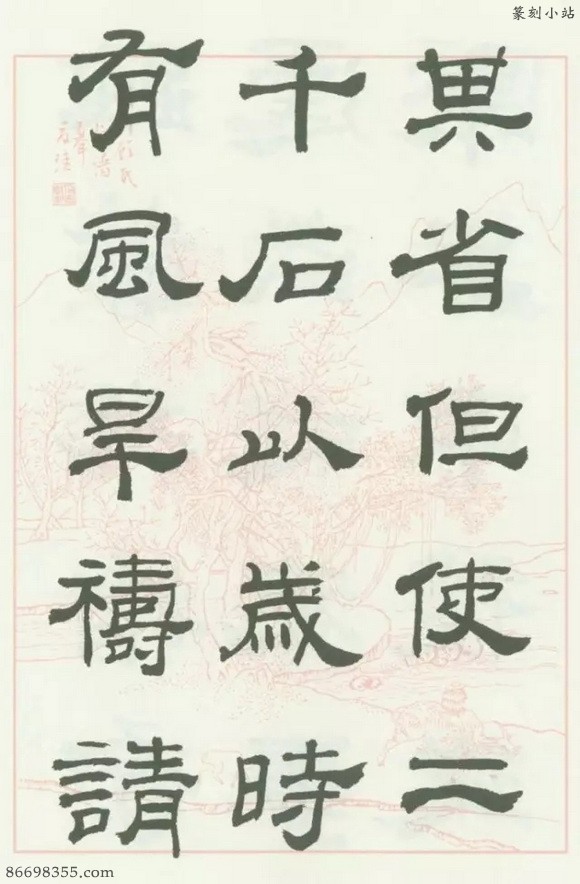 篆刻小站
其省但使二
千石以歲時
有風旱禱請
86698355.com